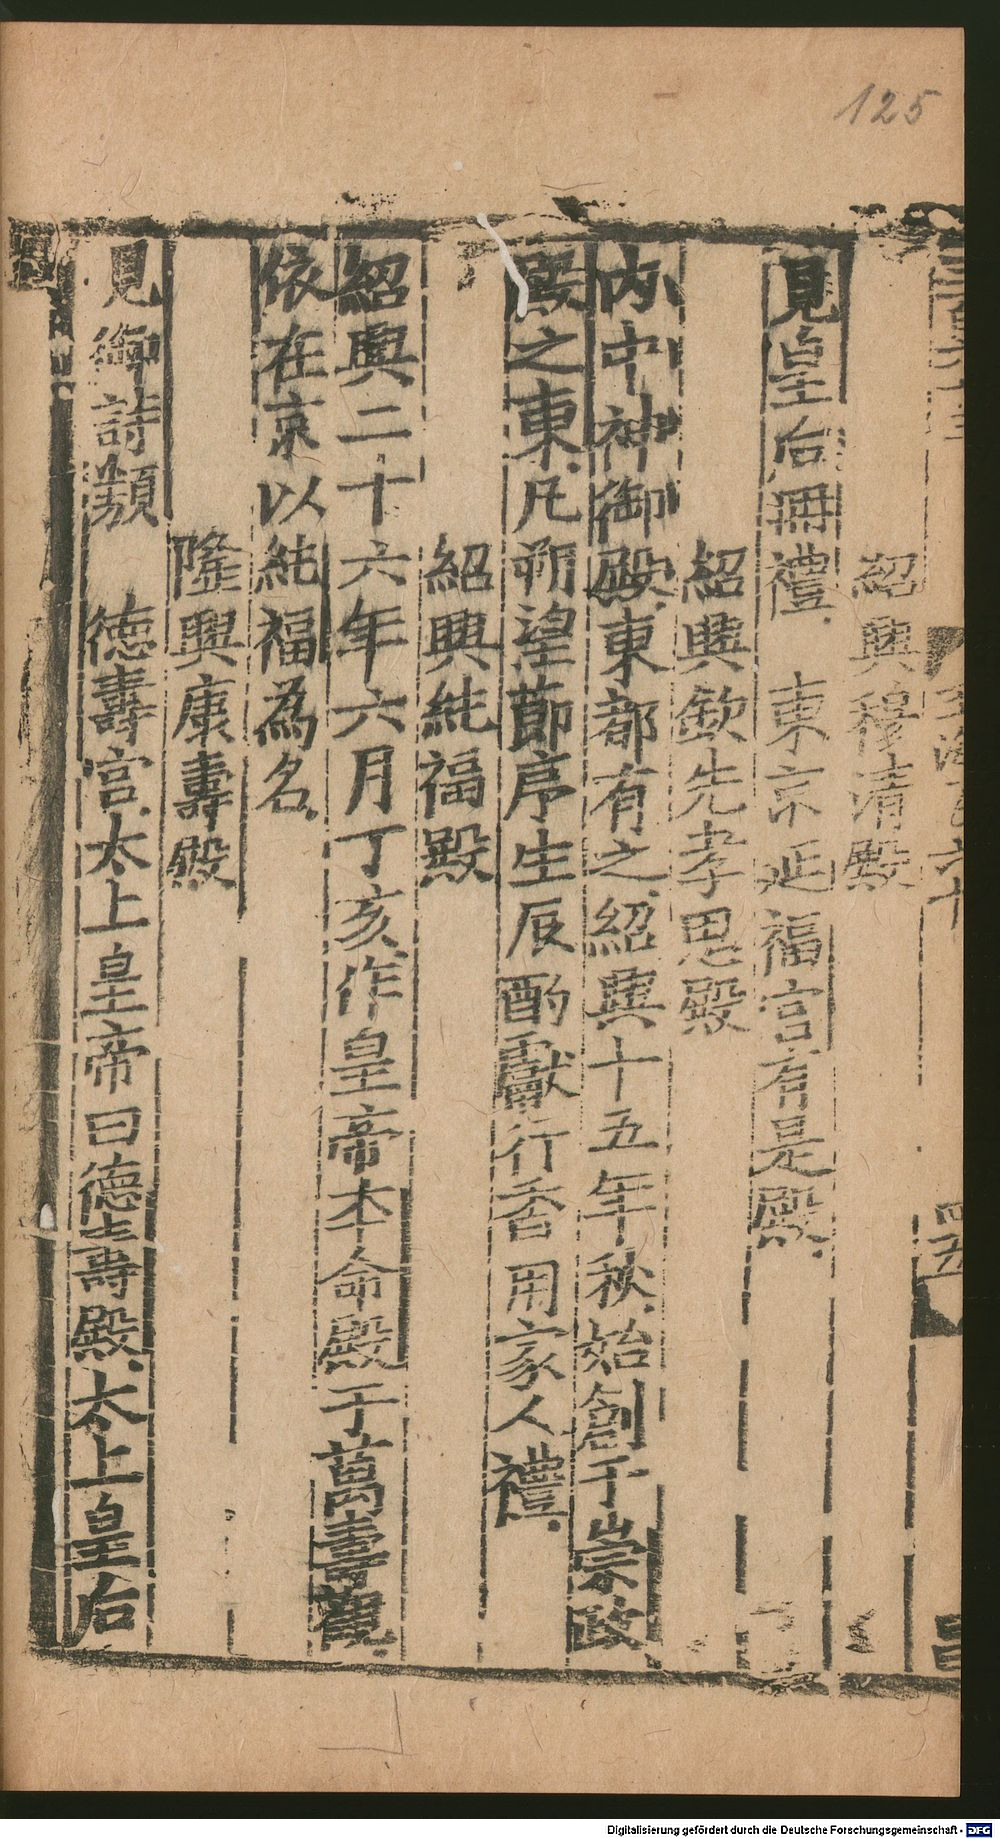 125
紹興穆清殿
見皇后冊禮 東京延福宮有是殿
紹興欽先孝思殿
內中神御殿東都有之紹興十五年秋始創于崇政
殿之東凡朔望節序生辰酌獻行香用家人禮
紹興純福殿
紹興二十六年六月丁亥作皇帝本命殿于萬壽觀
依在京以純福為名
隆興康壽殿
見御詩類 德壽宮太上皇帝曰德壽殿太上皇后
Digitalisierung gefördert durch die Deutsche Forschungsgemeinschaft - DFG